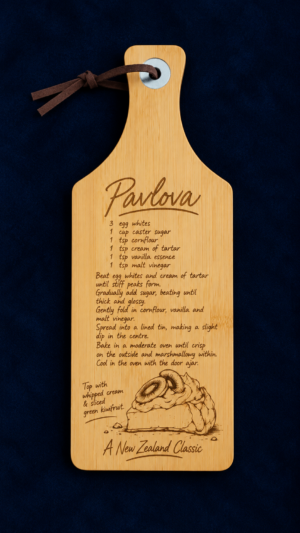 Pavlova
3 egg whites
1 cup caster sugar
1 tsp cornflour
1 tsp cream of tartar
1 tsp vanilla essence
1 tsp malt vinegar
Beat egg whites and cream of tartar
until stiff peaks form.
Gradually add sugar, beating until
thick and glossy.
Gently fold in cornflour, vanilla and
malt vinegar.
Spread into a lined tin, making a slight
dip in the centre.
Bake in a moderate oven until crisp
on the outside and marshmallowy within.
Cool in the oven with the door ajar.
Top with
whipped cream
& sliced
green kiwifruit.
A New Zealand Classic